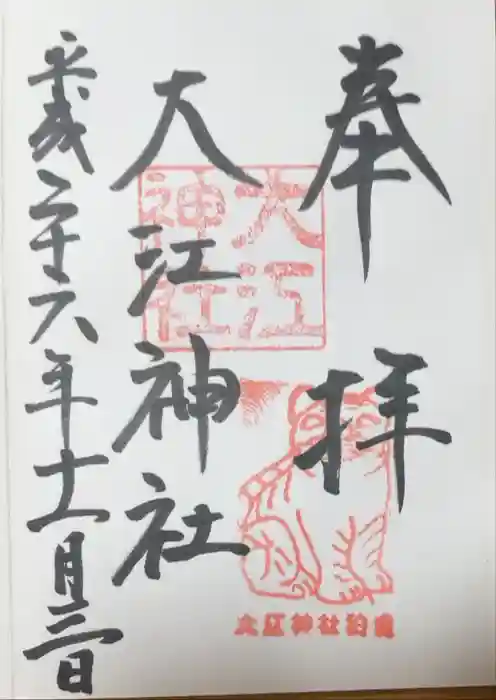 奉拝
大江神社
平成二十六年十一月三日
大江
神社
大江神社狛虎